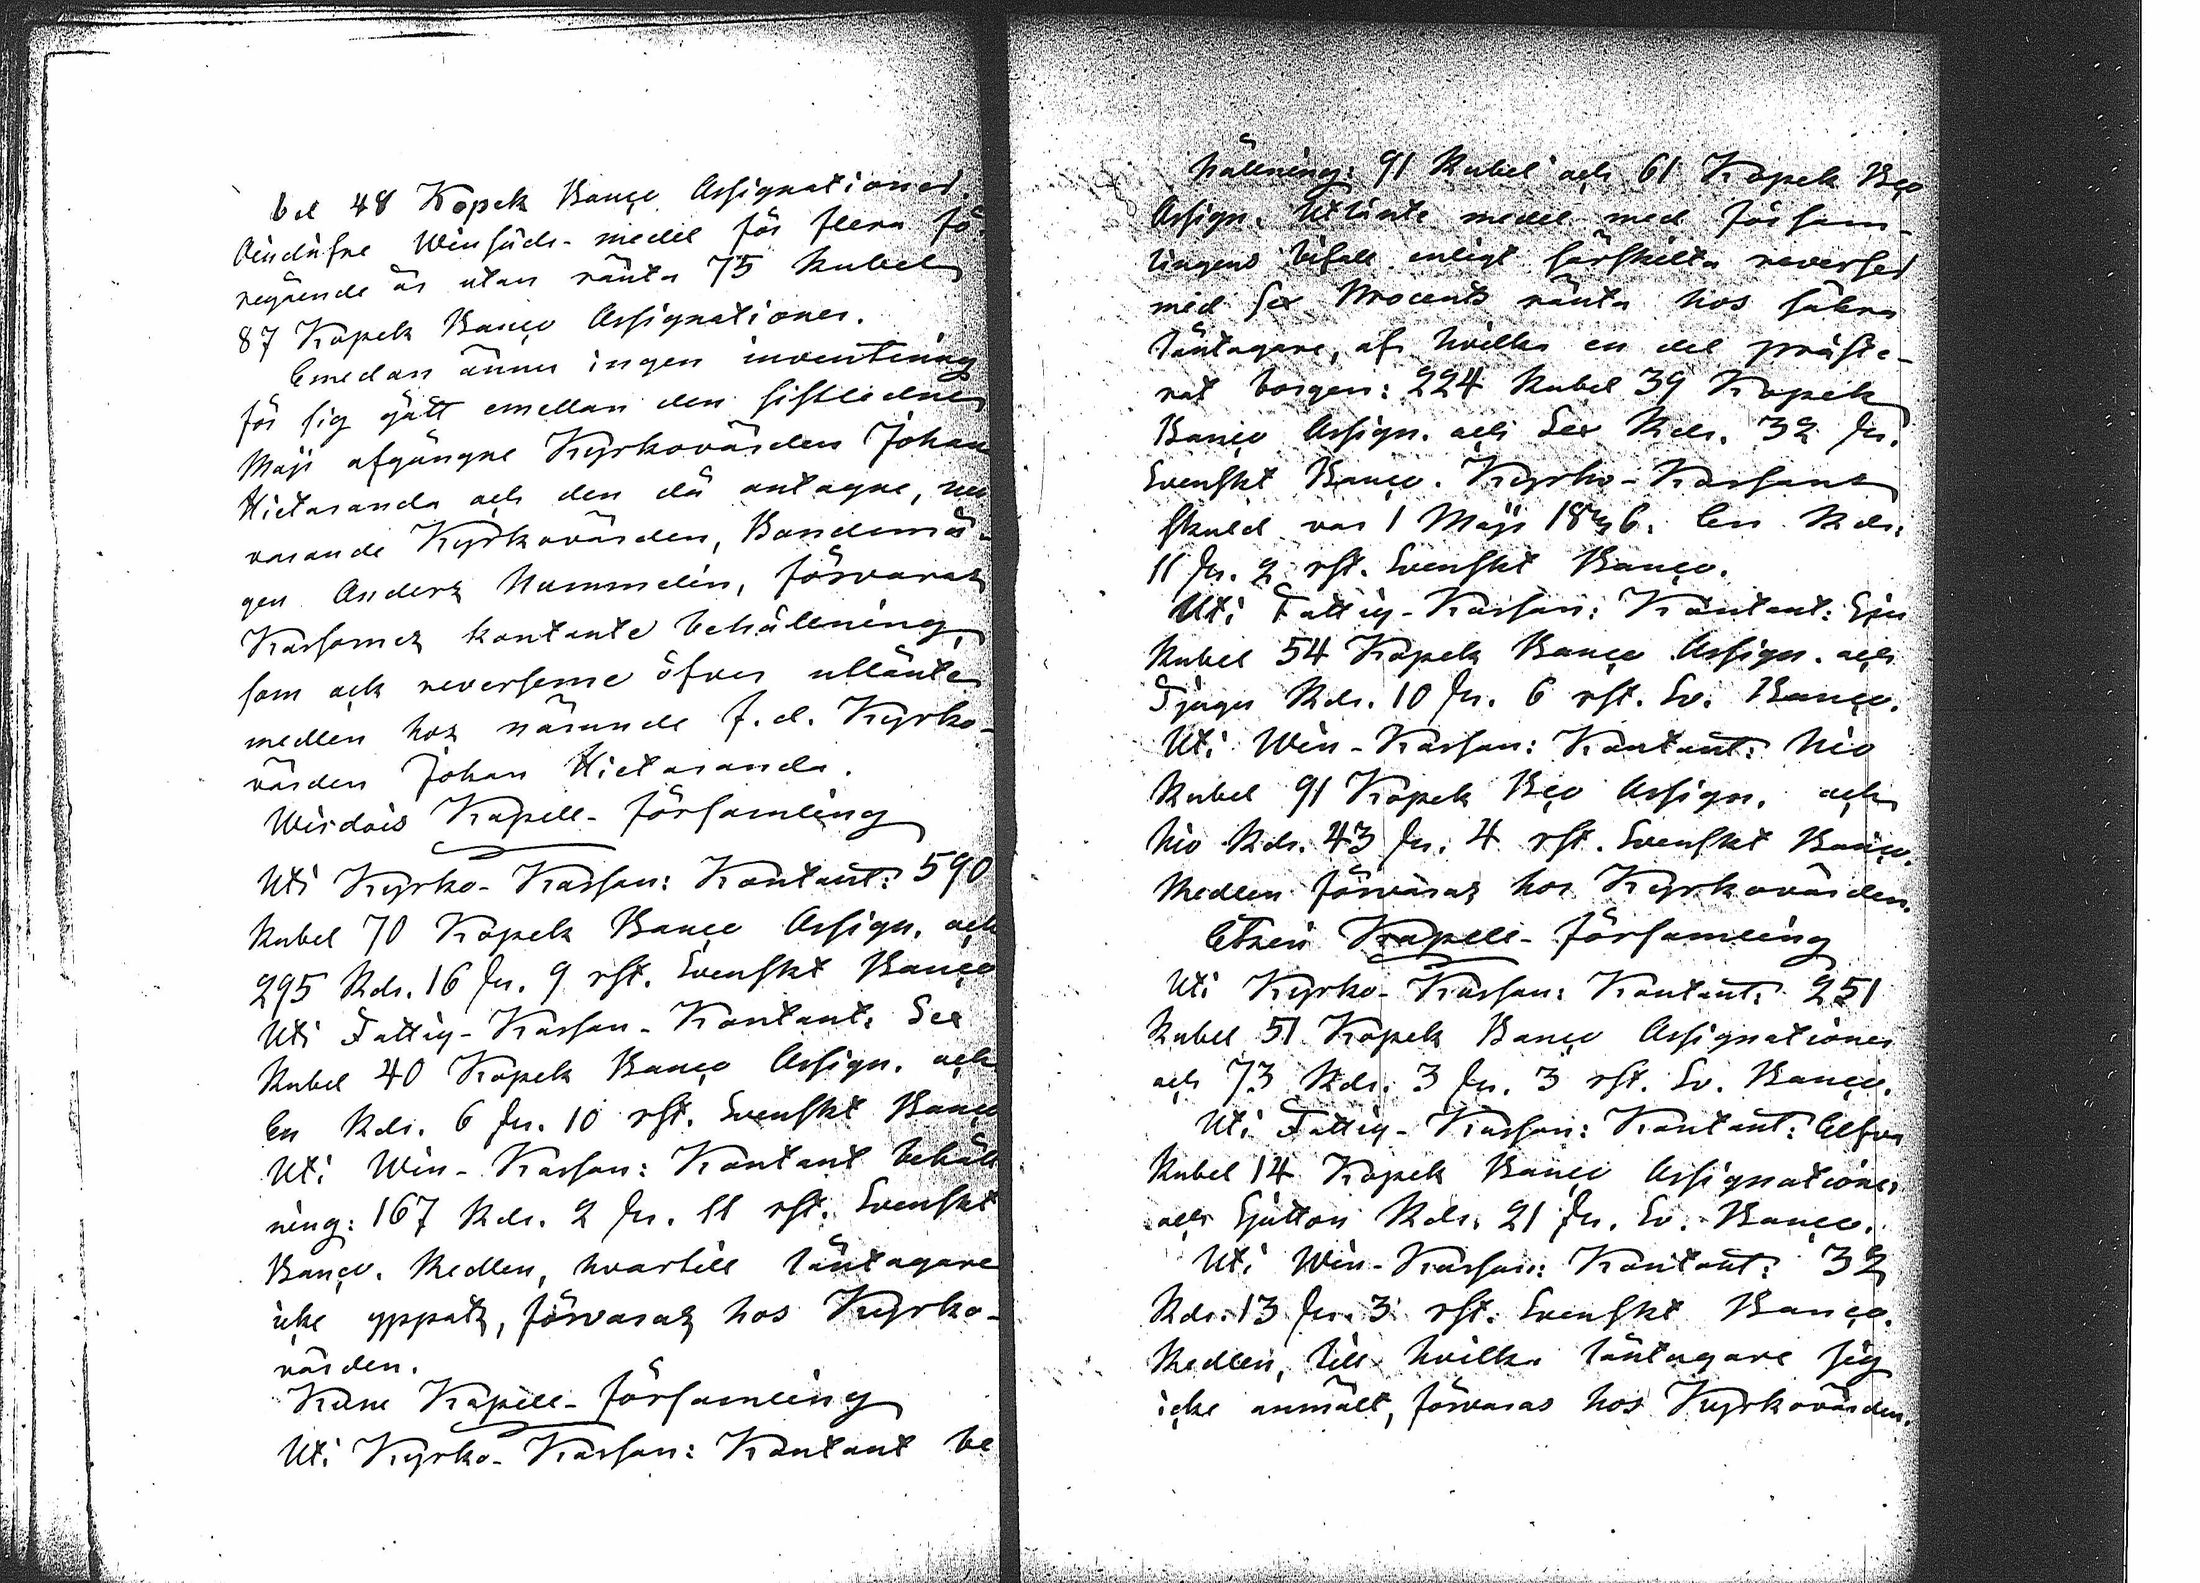 bel 48 Kopek Banco Assignationer
Aindäfne Winsäds-medel för flera fö-
regående år utan ränta 75 Rubel
87 Kopek Banco Assignationer.
Emedan ännu ingen inventering
för sig gått emellan den sistledne
Maji afgångne Kyrkovärden Johan
Hietaranda och den då antagne, nu
varande Kyrkovärden, Bondemå-
gen Anders Nummelin, förvaras
Kassornes kontante behållning,
som ock reverserne öfver utlånte
medlen hos närande f.d. Kyrko-
värden Johan Hietaranda.
Wirdois Kapell-Församling
Uti Kyrko-Kassan: Kontant: 590
Rubel 70 Kopek Banco Assign. och
295 Rdr. 16 ſk. 9 rſt. Svenskt Banco
Uti Fattig-Kassan-Kontant: Sex
Rubel 40 Kopek Banco Assign. och
En Rdr. 6 ſk. 10 rſt. Svenskt Banco
Uti Win-Kassan: Kontant behåll
ning: 167 Rdr. 2 ſk. 11 rſt. Svenskt
Banco. Medlen, hvartill låntagare
icke yppats, förvaras hos Kyrko-
värden.
Keuru Kapell-Församling
Uti Kyrko-Kassan: Kontant be
hållning: 91 Rubel och 61 Kopek Bco
Assign. Utlånte medel med försam-
lingens bifall enligt särskilta reverser
med Sex Procents ränta hos säkra
låntagare, af hvilka en del præste-
rat borgen: 224 Rubel 39 Kopek
Banco Assign. och Sex Rdr. 32 ſk.
Svenskt Banco. Kyrko-Kassans
skuld var 1 Maji 1836. En Rdr.
11 ſk. 2 rſt. Svenskt Banco.
Uti Fattig-Kassan: Kontant: Sju
Rubel 54 Kopek Banco Assign. och
Tjugu Rdr. 10 ſk. 6 rſt. Sv. Banco.
Uti Win-Kassan: Kontant: Nio
Rubel 91 Kopek Bco Assign. och
Nio Rdr. 43 ſk. 4 rſt. Svenskt Banco.
Medlen förvaras hos Kyrkovärden.
Etseri Kapell-Församling
Uti Kyrko-Kassan: Kontant: 251
Rubel 51 Kopek Banco Assignationer
och 73 Rdr. 3 ſk. 3 rſt. Sv. Banco.
Uti Fattig-Kassan: Kontant: Elfva
Rubel 14 Kopek Banco Assignationer
och Sjutton Rdr. 21 ſk. Sv. Banco.
Uti Win-Kassan: Kontant: 32
Rdr. 13 ſk. 3 rſt. Svenskt Banco.
Medlen, till hvilka låntagare sig
icke anmält, förvaras hos Kyrkovärden.